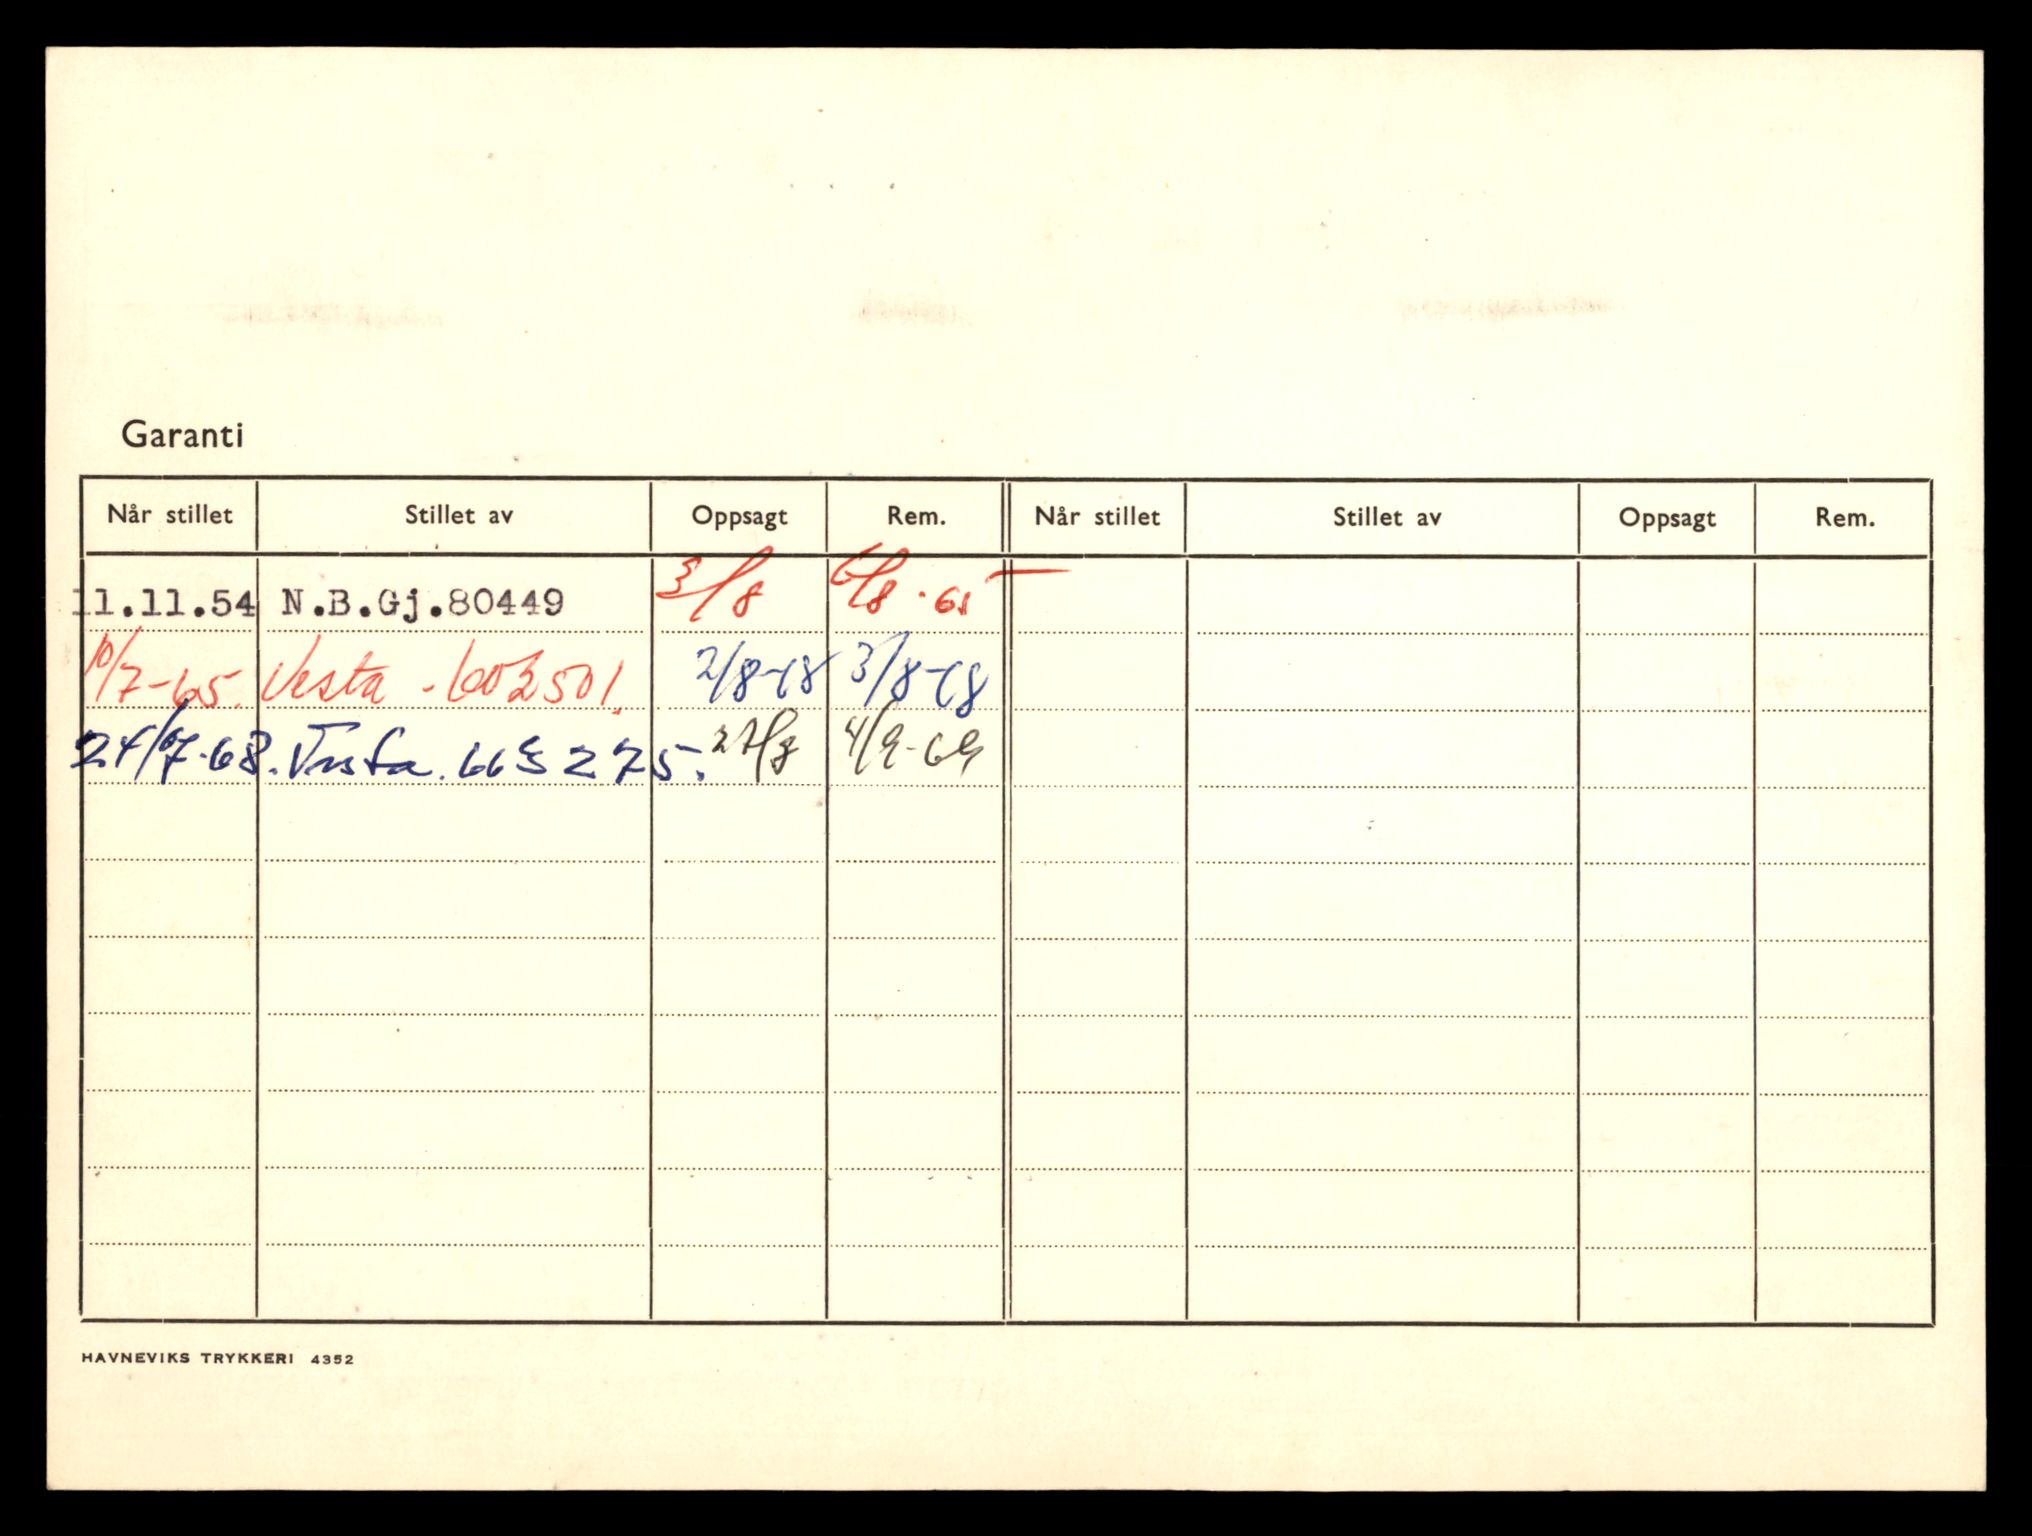 Garanti
Når stillet Stillet av Oppsagt Rem. Når stillet Stillet av Oppsagt Rem.
11.11.54 N.B.Gj.80449 3/8 6/8.65
10/7-65. Vesta - 602501. 2/8-68 3/8-68
24/7-68. Vesta. 663275. 27/8 4/9-69
HAVNEVIKS TRYKKERI 4352